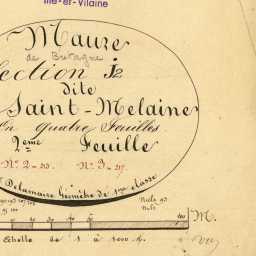 Ille-et-Vilaine
Mauze
de Bretagne
Section J2
dite
Saint-Melaine
En quatre Feuilles
2eme Feuille
N° 2 N° 3
Delamaire Géomètre de 1ere classe
100 M.
Echelle de 1 à 1000